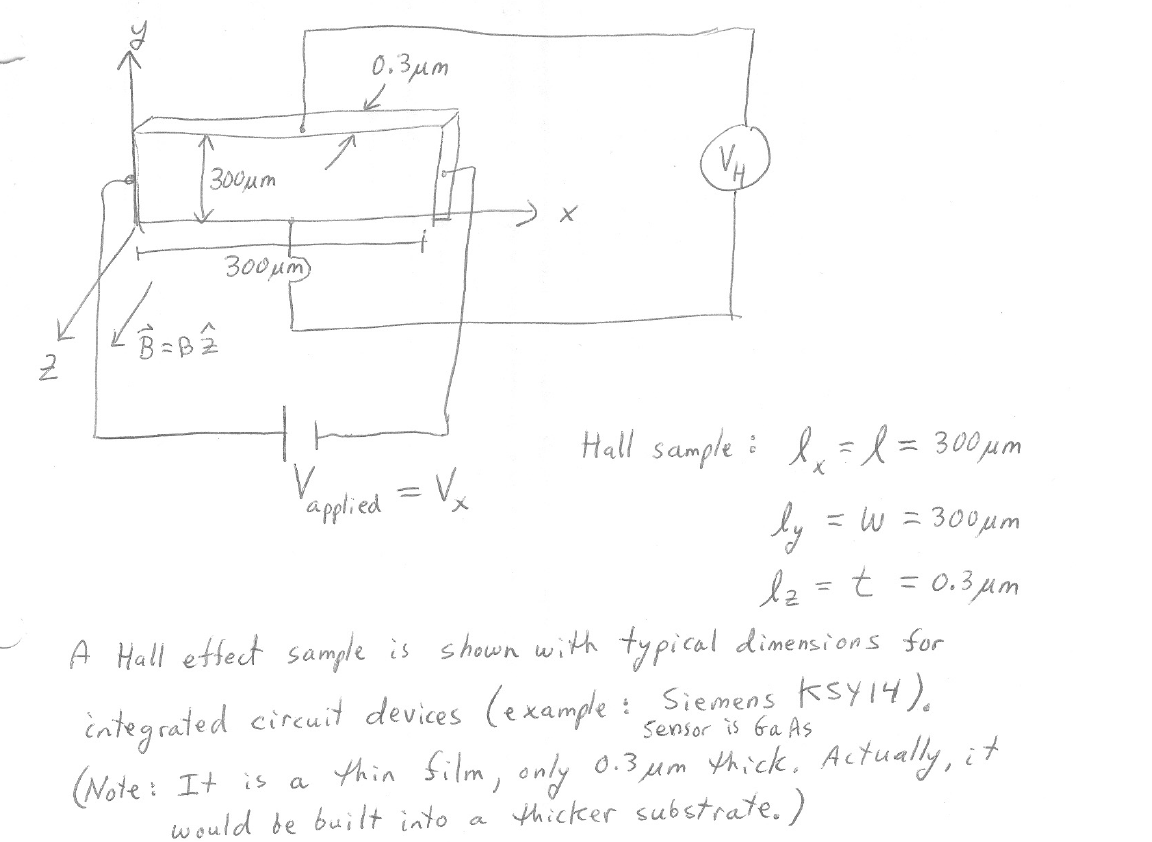 y
0.3 μm
300μm
V_H
x
300μm
B⃗ = B ẑ
z
V_applied = V_x
Hall sample: l_x = l = 300μm
l_y = w = 300μm
l_z = t = 0.3μm
A Hall effect sample is shown with typical dimensions for
integrated circuit devices (example: Siemens KSY14).
sensor is GaAs
(Note: It is a thin film, only 0.3μm thick. Actually, it
would be built into a thicker substrate.)